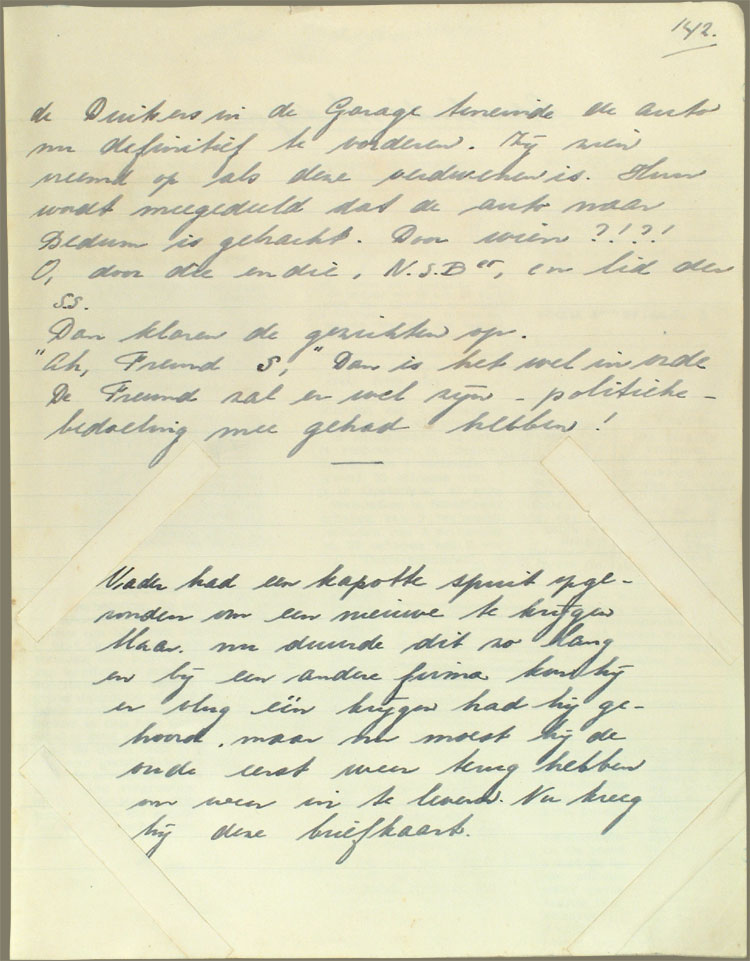 142.
de Duitsers in de Garage teneinde de auto
nu definitief te vorderen. Zij zien
vreemd op als deze verdwenen is. Hun
wordt meegedeeld dat de auto naar
Bedum is gebracht. Door wien ?!?!
O, door die en die, N.S.Ber, en lid der
S.S.
Dan klaren de gezichten op.
"Ah, Freund S," Dan is het wel in orde
De Freund zal er wel zijn - politieke -
bedoeling mee gehad hebben!
Vader had een kapotte spuit opge-
zonden om een nieuwe te krijgen
Maar. nu duurde dit zo lang
en bij een andere firma kon hij
er vlug één krijgen had hij ge-
hoord. maar nu moest hij de
oude eerst weer terug hebben
om weer in te leveren. Nu kreeg
hij deze briefkaart.